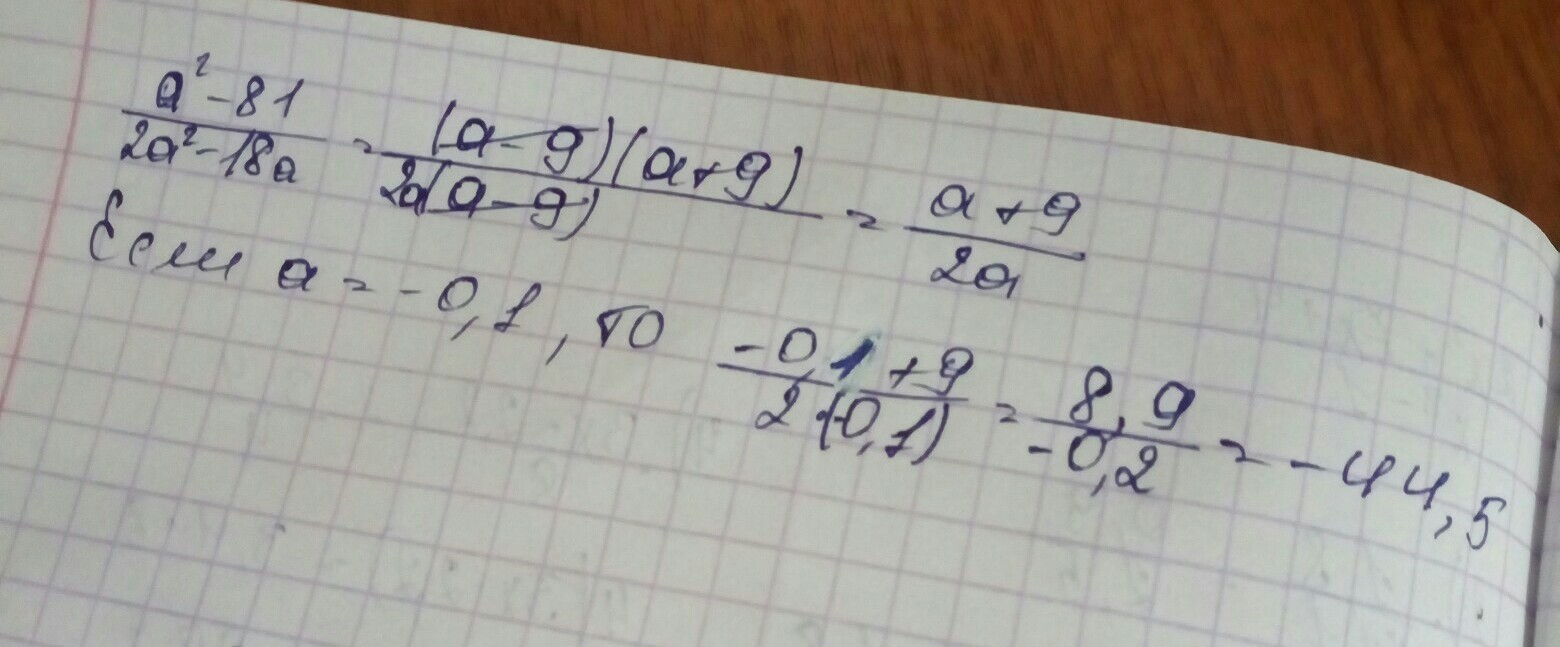 a²-81/2a²-18a = (a-9)(a+9)/2a(a-9) = a+9/2a
Если a = -0,1, то -0,1+9/2·(-0,1) = 8,9/-0,2 = -44,5